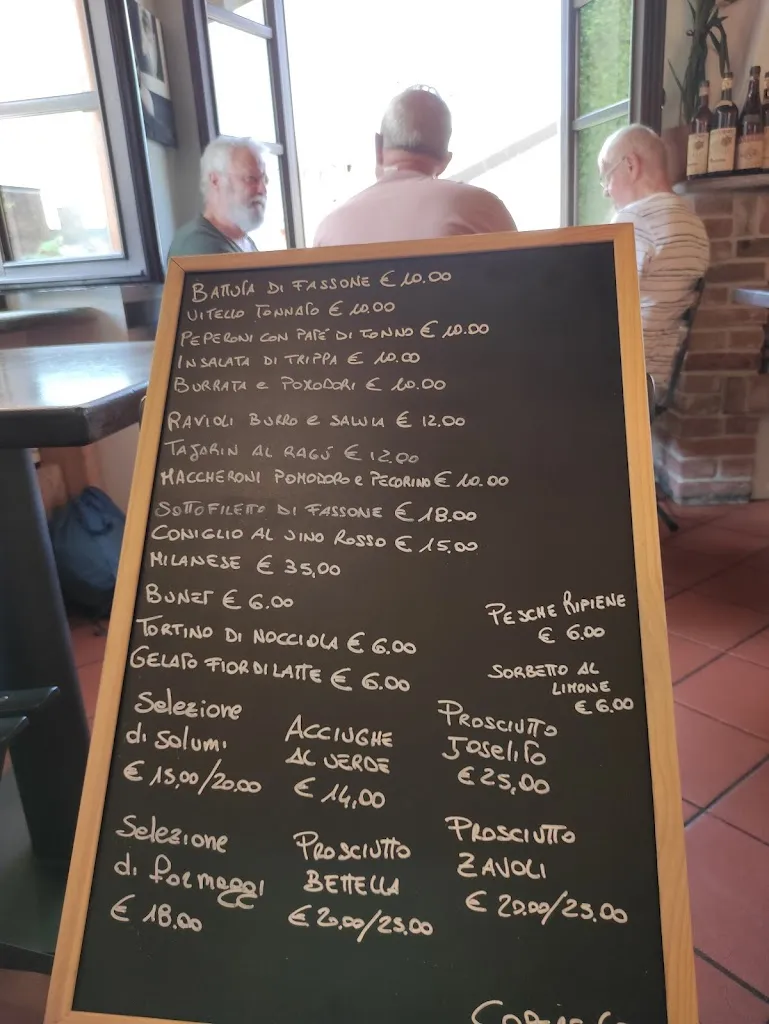 BATTUTA DI FASSONE € 10.00
VITELLO TONNATO € 10.00
PEPERONI CON PATÉ DI TONNO € 10.00
INSALATA DI TRIPPA € 10.00
BURRATA e POMODORI € 10.00
RAVIOLI BURRO e SALVIA € 12.00
TAJARIN AL RAGÚ € 12.00
MACCHERONI POMODORO e PECORINO € 10.00
SOTTOFILETTO DI FASSONE € 18.00
CONIGLIO AL VINO ROSSO € 15,00
MILANESE € 35,00
BUNET € 6.00
TORTINO DI NOCCIOLA € 6.00
GELATO FIORDILATTE € 6.00
PESCHE RIPIENE
€ 6.00
SORBETTO AL
LIMONE
€ 6.00
Selezione
di salumi
€ 15,00/20.00
ACCIUGHE
AL VERDE
€ 14,00
PROSCIUTTO
Joselito
€ 25,00
Selezione
di formaggi
€ 18.00
PROSCIUTTO
BETTELLA
€ 20.00/25.00
PROSCIUTTO
ZAVOLI
€ 20.00/25.00